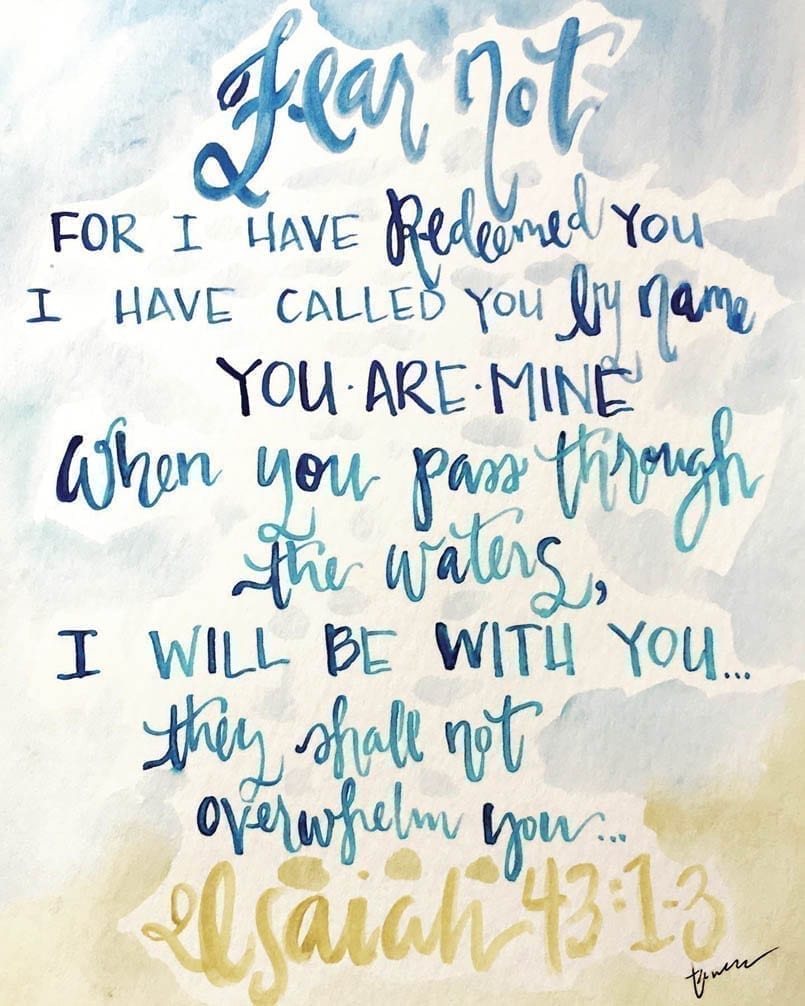 Fear not
FOR I HAVE Redeemed YOU
I HAVE CALLED YOU by name
YOU·ARE·MINE
When you pass through
the waters,
I WILL BE WITH YOU...
they shall not
overwhelm you...
Isaiah 43:1-3